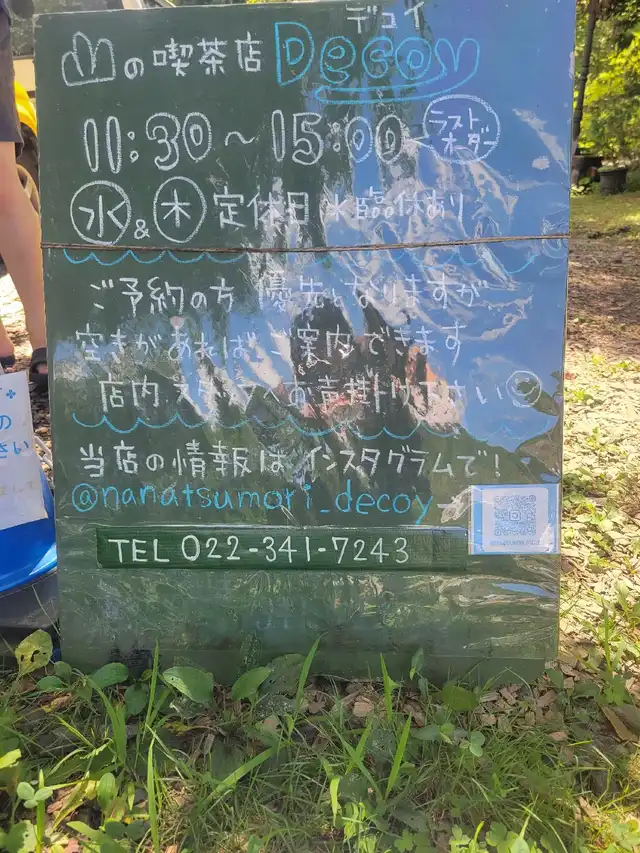 デコイ
山の喫茶店 Decoy
11:30〜15:00 ラストオーダー
水&木 定休日 *臨休あり
ご予約の方 優先となりますが
空きがあればご案内できます
店内スタッフへお声掛け下さい
当店の情報はインスタグラムで!
@nanatsumori_decoy→
TEL 022-341-7243
の
さい